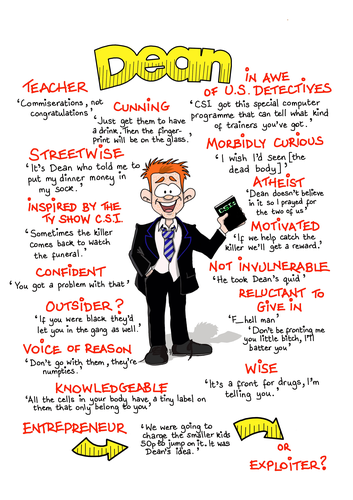 Dean
TEACHER
'Commiserations, not
congratulations'
CUNNING
'Just get them to have
a drink. Then the finger-
print will be on the glass.'
IN AWE
OF U.S. DETECTIVES
'CSI got this special computer
programme that can tell what kind
of trainers you've got.'
STREETWISE
'It's Dean who told me to
put my dinner money in
my sock.'
MORBIDLY CURIOUS
'I wish I'd seen [the
dead body]'
ATHEIST
'Dean doesn't believe
in it so I prayed for
the two of us'
INSPIRED BY THE
TV SHOW C.S.I.
'Sometimes the killer
comes back to watch
the funeral.'
CSI
MOTIVATED
'If we help catch the
killer we'll get a reward.'
CONFIDENT
'You got a problem with that'
NOT INVULNERABLE
'He took Dean's quid'
OUTSIDER?
'If you were black they'd
let you in the gang as well.'
RELUCTANT TO
GIVE IN
'F__hell man'
'Don't be fronting me
you little bitch, I'll
batter you'
VOICE OF REASON
'Don't go with them, they're
numpties.'
WISE
'It's a front for drugs, I'm
telling you.'
KNOWLEDGEABLE
'All the cells in your body have, a tiny label on
them that only belong to you'
ENTREPRENEUR
'We were going to
charge the smaller kids
50p to jump on it. It was
Dean's idea.'
OR
EXPLOITER?